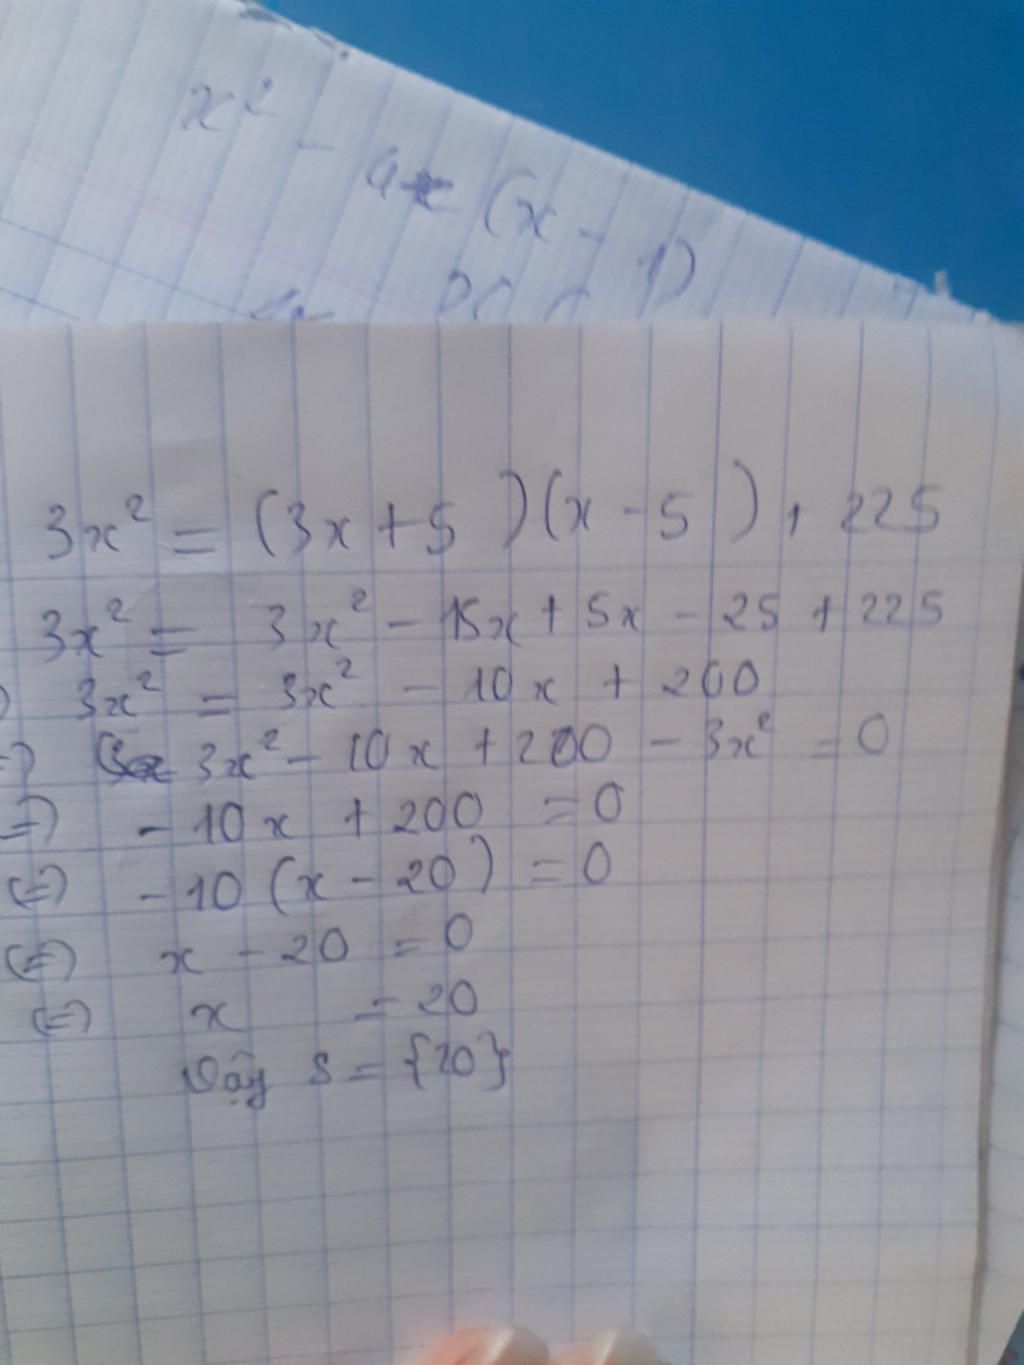 x² - 4x (x - 1)
3x² = (3x + 5)(x - 5) + 225
3x² = 3x² - 15x + 5x - 25 + 225
3x² = 3x² - 10x + 200
3x² - 10x + 200 - 3x² = 0
- 10x + 200 = 0
(=) - 10 (x - 20) = 0
(=) x - 20 = 0
(=) x = 20
Vậy S = {20}